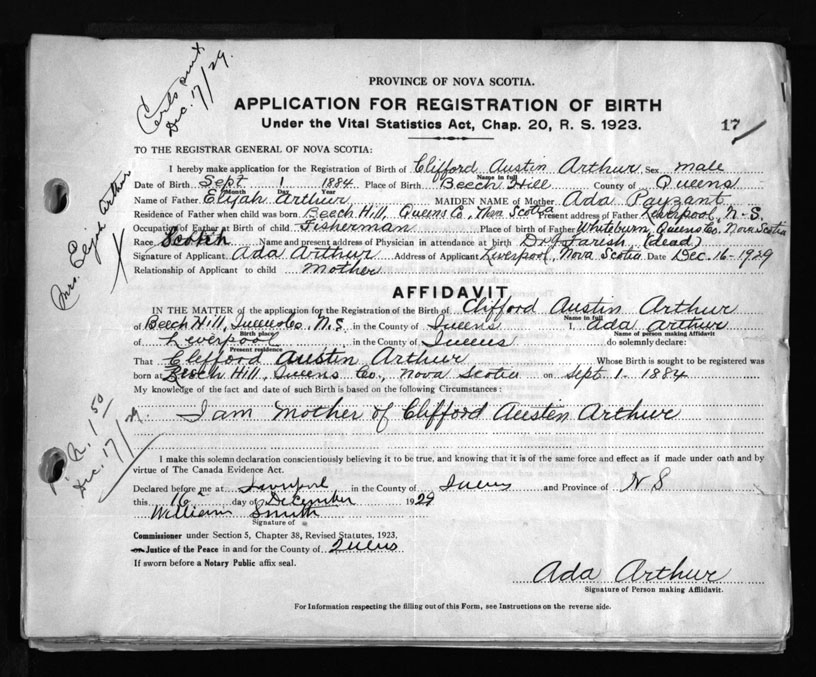 Certs sent
Dec. 17/29.
PROVINCE OF NOVA SCOTIA.
APPLICATION FOR REGISTRATION OF BIRTH
Under the Vital Statistics Act, Chap. 20, R. S. 1923.
17
TO THE REGISTRAR GENERAL OF NOVA SCOTIA:
I hereby make application for the Registration of Birth of Clifford Austin Arthur Sex male
Name in full
Date of Birth Sept 1 1884 Place of Birth Beech Hill County of Queens
Month Day Year
Name of Father Elijah Arthur MAIDEN NAME of Mother Ada Payzant
Residence of Father when child was born Beech Hill, Queens Co, Nova Scotia Present address of Father Liverpool, N-S.
Occupation of Father at Birth of child Fisherman Place of birth of Father Whiteburn, Queens Co, Nova Scotia
Race Scotch Name and present address of Physician in attendance at birth Dr Farish, (dead)
Signature of Applicant Ada Arthur Address of Applicant Liverpool, Nova Scotia Date Dec. 16-1929
Relationship of Applicant to child mother
Mrs. Elijah Arthur
X
AFFIDAVIT
IN THE MATTER of the application for the Registration of the Birth of Clifford Austin Arthur
Name in full
of Beech Hill, Queens Co, N.S in the County of Queens I, Ada Arthur
Birth place Name of person making Affidavit
of Liverpool in the County of Queens do solemnly declare:
Present residence
That Clifford Austin Arthur Whose Birth is sought to be registered was
born at Beech Hill, Queens Co., Nova Scotia on Sept 1-1884
My knowledge of the fact and date of such Birth is based on the following Circumstances:
I am mother of Clifford Austen Arthur
1.50
Dec. 17/29.
I make this solemn declaration conscientiously believing it to be true, and knowing that it is of the same force and effect as if made under oath and by
virtue of The Canada Evidence Act.
Declared before me at Liverpool in the County of Queens and Province of N S
this 16 day of December 1929
William Smith
Signature of
Commissioner under Section 5, Chapter 38, Revised Statutes, 1923.
or Justice of the Peace in and for the County of Queens
If sworn before a Notary Public affix seal.
Ada Arthur
Signature of Person making Affidavit.
For Information respecting the filling out of this Form, see Instructions on the reverse side.